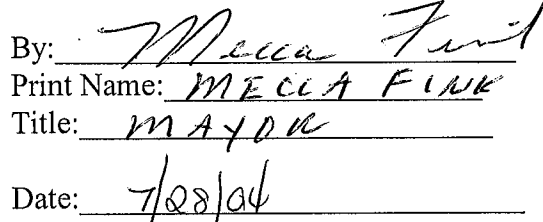 By: Mecca Fink
Print Name: MECCA FINK
Title: MAYOR
Date: 7/28/04